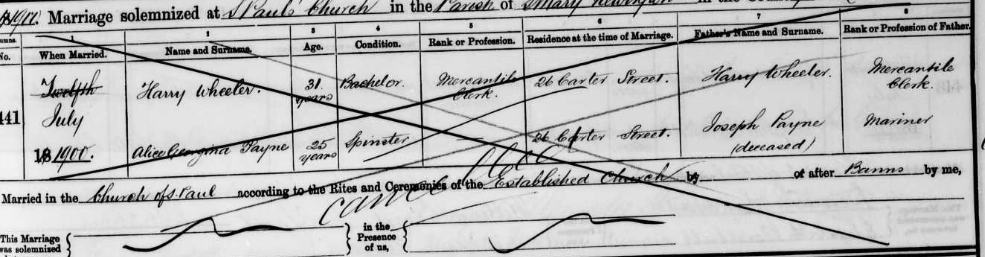 1900. Marriage solemnized at S. Paul's Church in the Parish of S. Mary Newington in the
No. When Married. Name and Surname. Age. Condition. Rank or Profession. Residence at the time of Marriage. Father's Name and Surname. Rank or Profession of Father.
441 Twelfth July 18 1900. Harry Wheeler. 31 years Bachelor. Mercantile Clerk. 26 Carter Street. Harry Wheeler. Mercantile Clerk.
Alice Georgina Payne 25 years Spinster 26 Carter Street. Joseph Payne (deceased) Mariner
Married in the Church of S. Paul according to the Rites and Ceremonies of the Established Church by or after Banns by me,
Cancelled
This Marriage was solemnized
in the Presence of us,